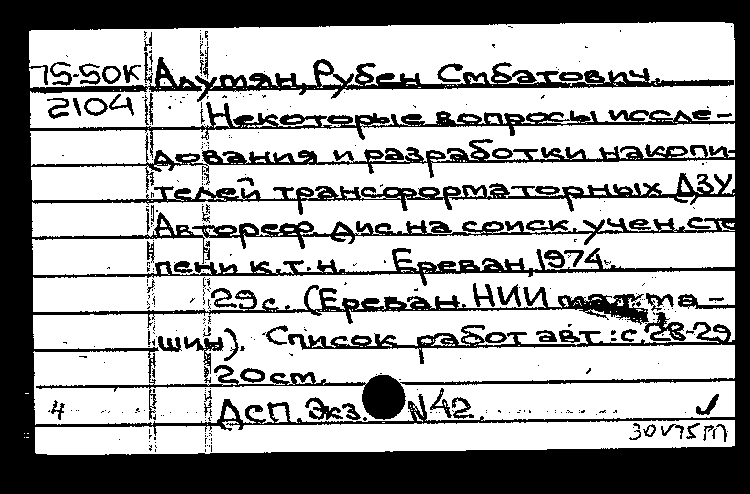 75-50К Алумян, Рубен Смбатович.
2104 Некоторые вопросы иссле-
дования и разработки накопи-
телей трансформаторных ДЗУ.
Автореф. дис. на соиск. учен. сте
пени к.т.н. Ереван, 1974.
29с. (Ереван. НИИ мат. ма-
шин). Список работ авт.: с. 28-29.
20см.
4 ДСП. Экз. N42.
30 V 75